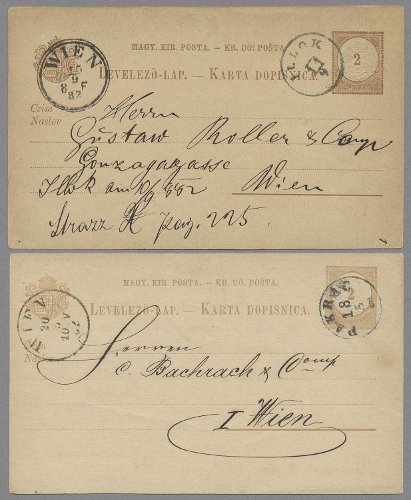 MAGY. KIR. POSTA. – KR. UG. POŠTA.
LEVELEZŐ-LAP. – KARTA DOPISNICA.
WIEN
9
8 F
82
ILLOK
2
Czim
Naslov
Herrn
Gustaw Roller & Comp
Gonzagagasse
Wien
Illok am
Strazz pag. 225
MAGY. KIR. POSTA. – KR. UG. POŠTA.
LEVELEZŐ-LAP. – KARTA DOPISNICA.
WIEN
PAKRAC
18
2
Herren
C. Bachrach & Comp
I Wien